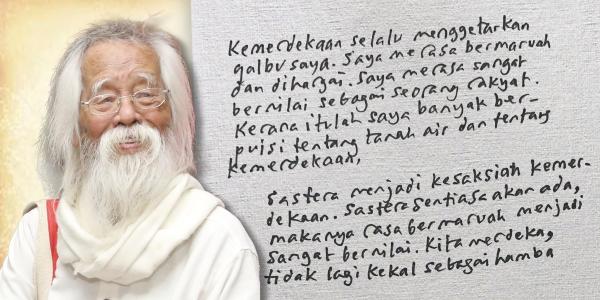 Kemerdekaan selalu menggetarkan
qalbu saya. Saya merasa bermaruah
dan dihargai. Saya merasa sangat
bernilai sebagai seorang rakyat.
Kerana itulah saya banyak ber-
puisi tentang tanah air dan tentang
kemerdekaan,
Sastera menjadi kesaksian kemer-
dekaan. Sastera sentiasa akan ada,
makanya rasa bermaruah menjadi
sangat bernilai. Kita merdeka,
tidak lagi kekal sebagai hamba